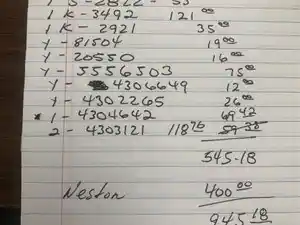 1 S-2822- 55
1 K-3492 121 00
1 K-2921 35 00
Y-81504 19 00
Y-20550 16 00
Y-5556503 75 00
Y-4306649 12 00
Y-4302265 26 00
* 1-4304642 69 42
2-4303121 118 76 59 38
545.18
Neston 400 00
945 18